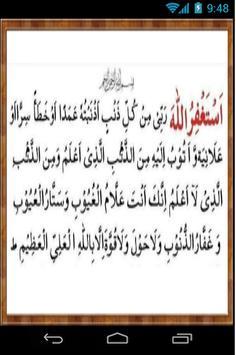 9:48
بسم الله الرحمن الرحيم
اَسْتَغْفِرُ اللّٰه رَبِّىْ مِنْ كُلِّ ذَنْبٍ اَذْنَبْتُهٗ عَمَدًا اَوْخَطَأً سِرًّا اَوْ
عَلَانِيَةً وَّ اَتُوْبُ اِلَيْهِ مِنَ الذَّنْبِ الَّذِىْ اَعْلَمُ وَمِنَ الذَّنْبِ
الَّذِىْ لَآ اَعْلَمُ اِنَّكَ اَنْتَ عَلَّامُ الْغُيُوْبِ وَسَتَّارُ الْعُيُوْبِ
وَ غَفَّارُ الذُّنُوْبِ وَلَاحَوْلَ وَلَاقُوَّةَ اِلَّا بِاللّٰهِ الْعَلِىِّ الْعَظِيْمِ ط